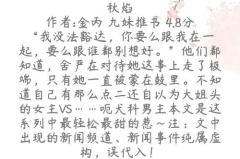 秋焰
作者:金丙 九妹推书 4.8分
“我没法豁达，你要么跟我在一
起，要么跟谁都别想好。”他们都
知道，舍严在对待她这事上走了极
端，只有她一直被蒙在鼓里。不知
道自己有那么点二还自以为大姐头
的女主VS……呃犬科男主本文是这
系列中最轻松最甜的惹~注：文中
出现的新闻频道、新闻事件纯属虚
构，误代入！